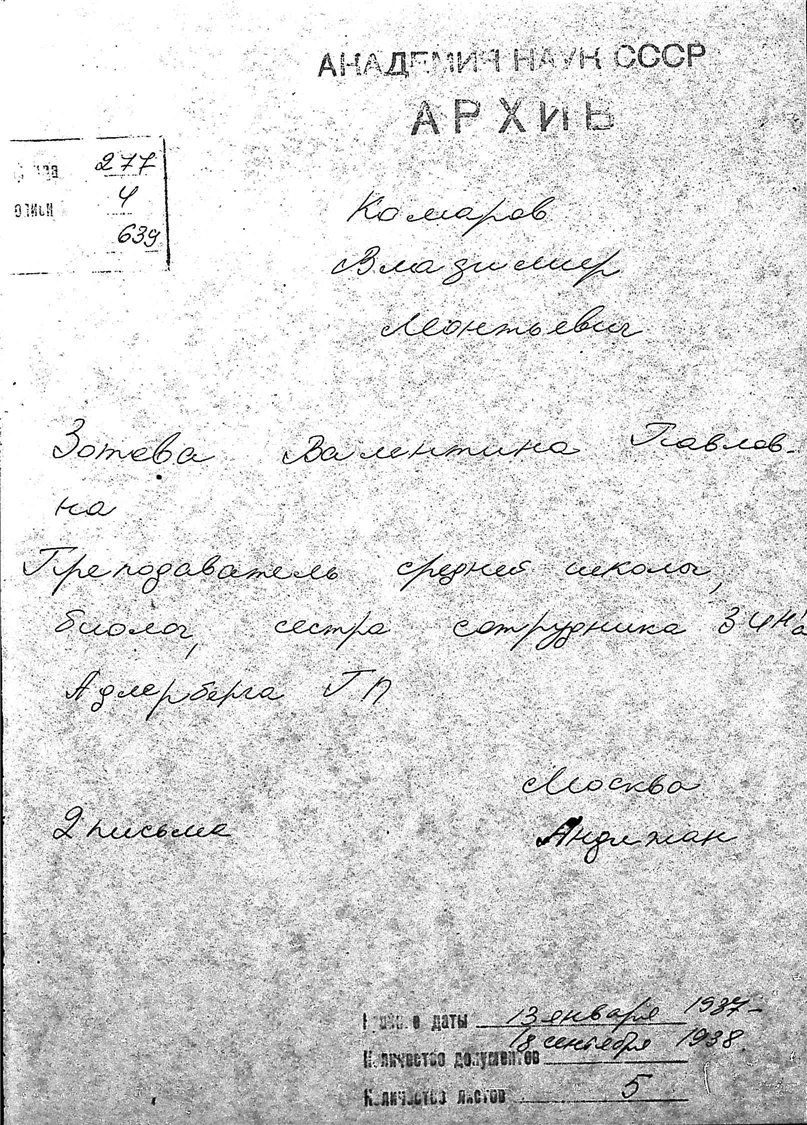 АКАДЕМИЯ НАУК СССР
АРХИВ
277
описи 4
639
Комаров
Владимир
Леонтьевич
Зотова Валентина Павлов-
на
Преподаватель средней школы,
биолог, сестра сотрудника ЗИНа
Адлерберга Г П
Москва
2 письма Андижан
Крайние даты 13 января 1937-
18 сентября 1938
Количество документов
Количество листов 5